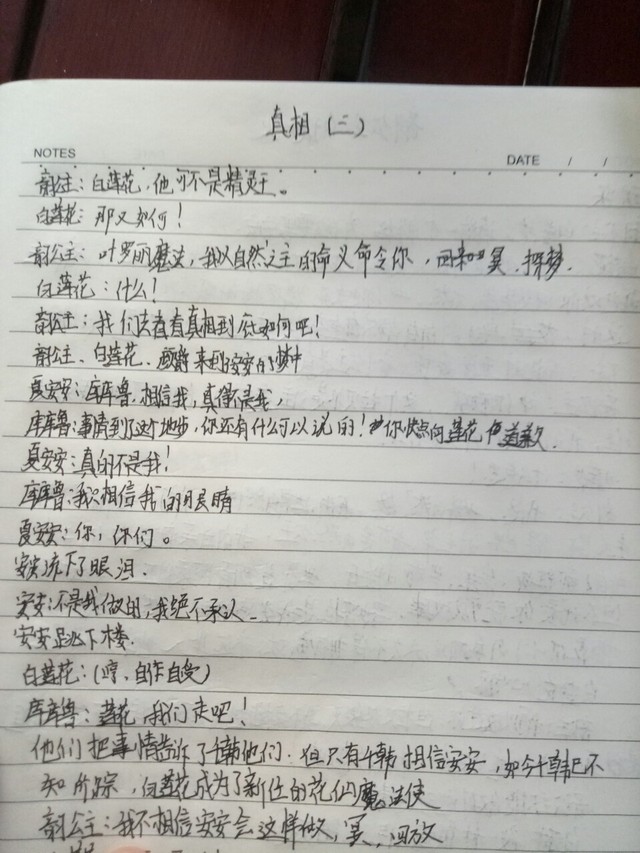 真相（三）
NOTES
DATE / /
韵公主：白莲花，他可不是精灵王。
白莲花：那又如何！
韵公主：叶罗丽魔法，我以自然之主的命义命令你，回来吧冥，探梦。
白莲花：什么！
韵公主：我们去看看真相到底如何吧！
韵公主、白莲花、来到安安的梦中
夏安安：库库鲁，相信我，真得不是我，
库库鲁：事情到了这个地步，你还有什么可以说的！你快点向莲花道歉。
夏安安：真的不是我！
库库鲁：我只相信我的眼睛
夏安安：你，你们。
安安流下了眼泪.
安安：不是我做的，我绝不承认.
安安跳下楼.
白莲花：（哼，自作自受）
库库鲁：莲花，我们走吧！
他们把事情告诉了千韩他们.但只有千韩相信安安，如今千韩已不
知所踪，白莲花成为了新任的花仙魔法使
韵公主：我不相信安安会这样做，冥，回放